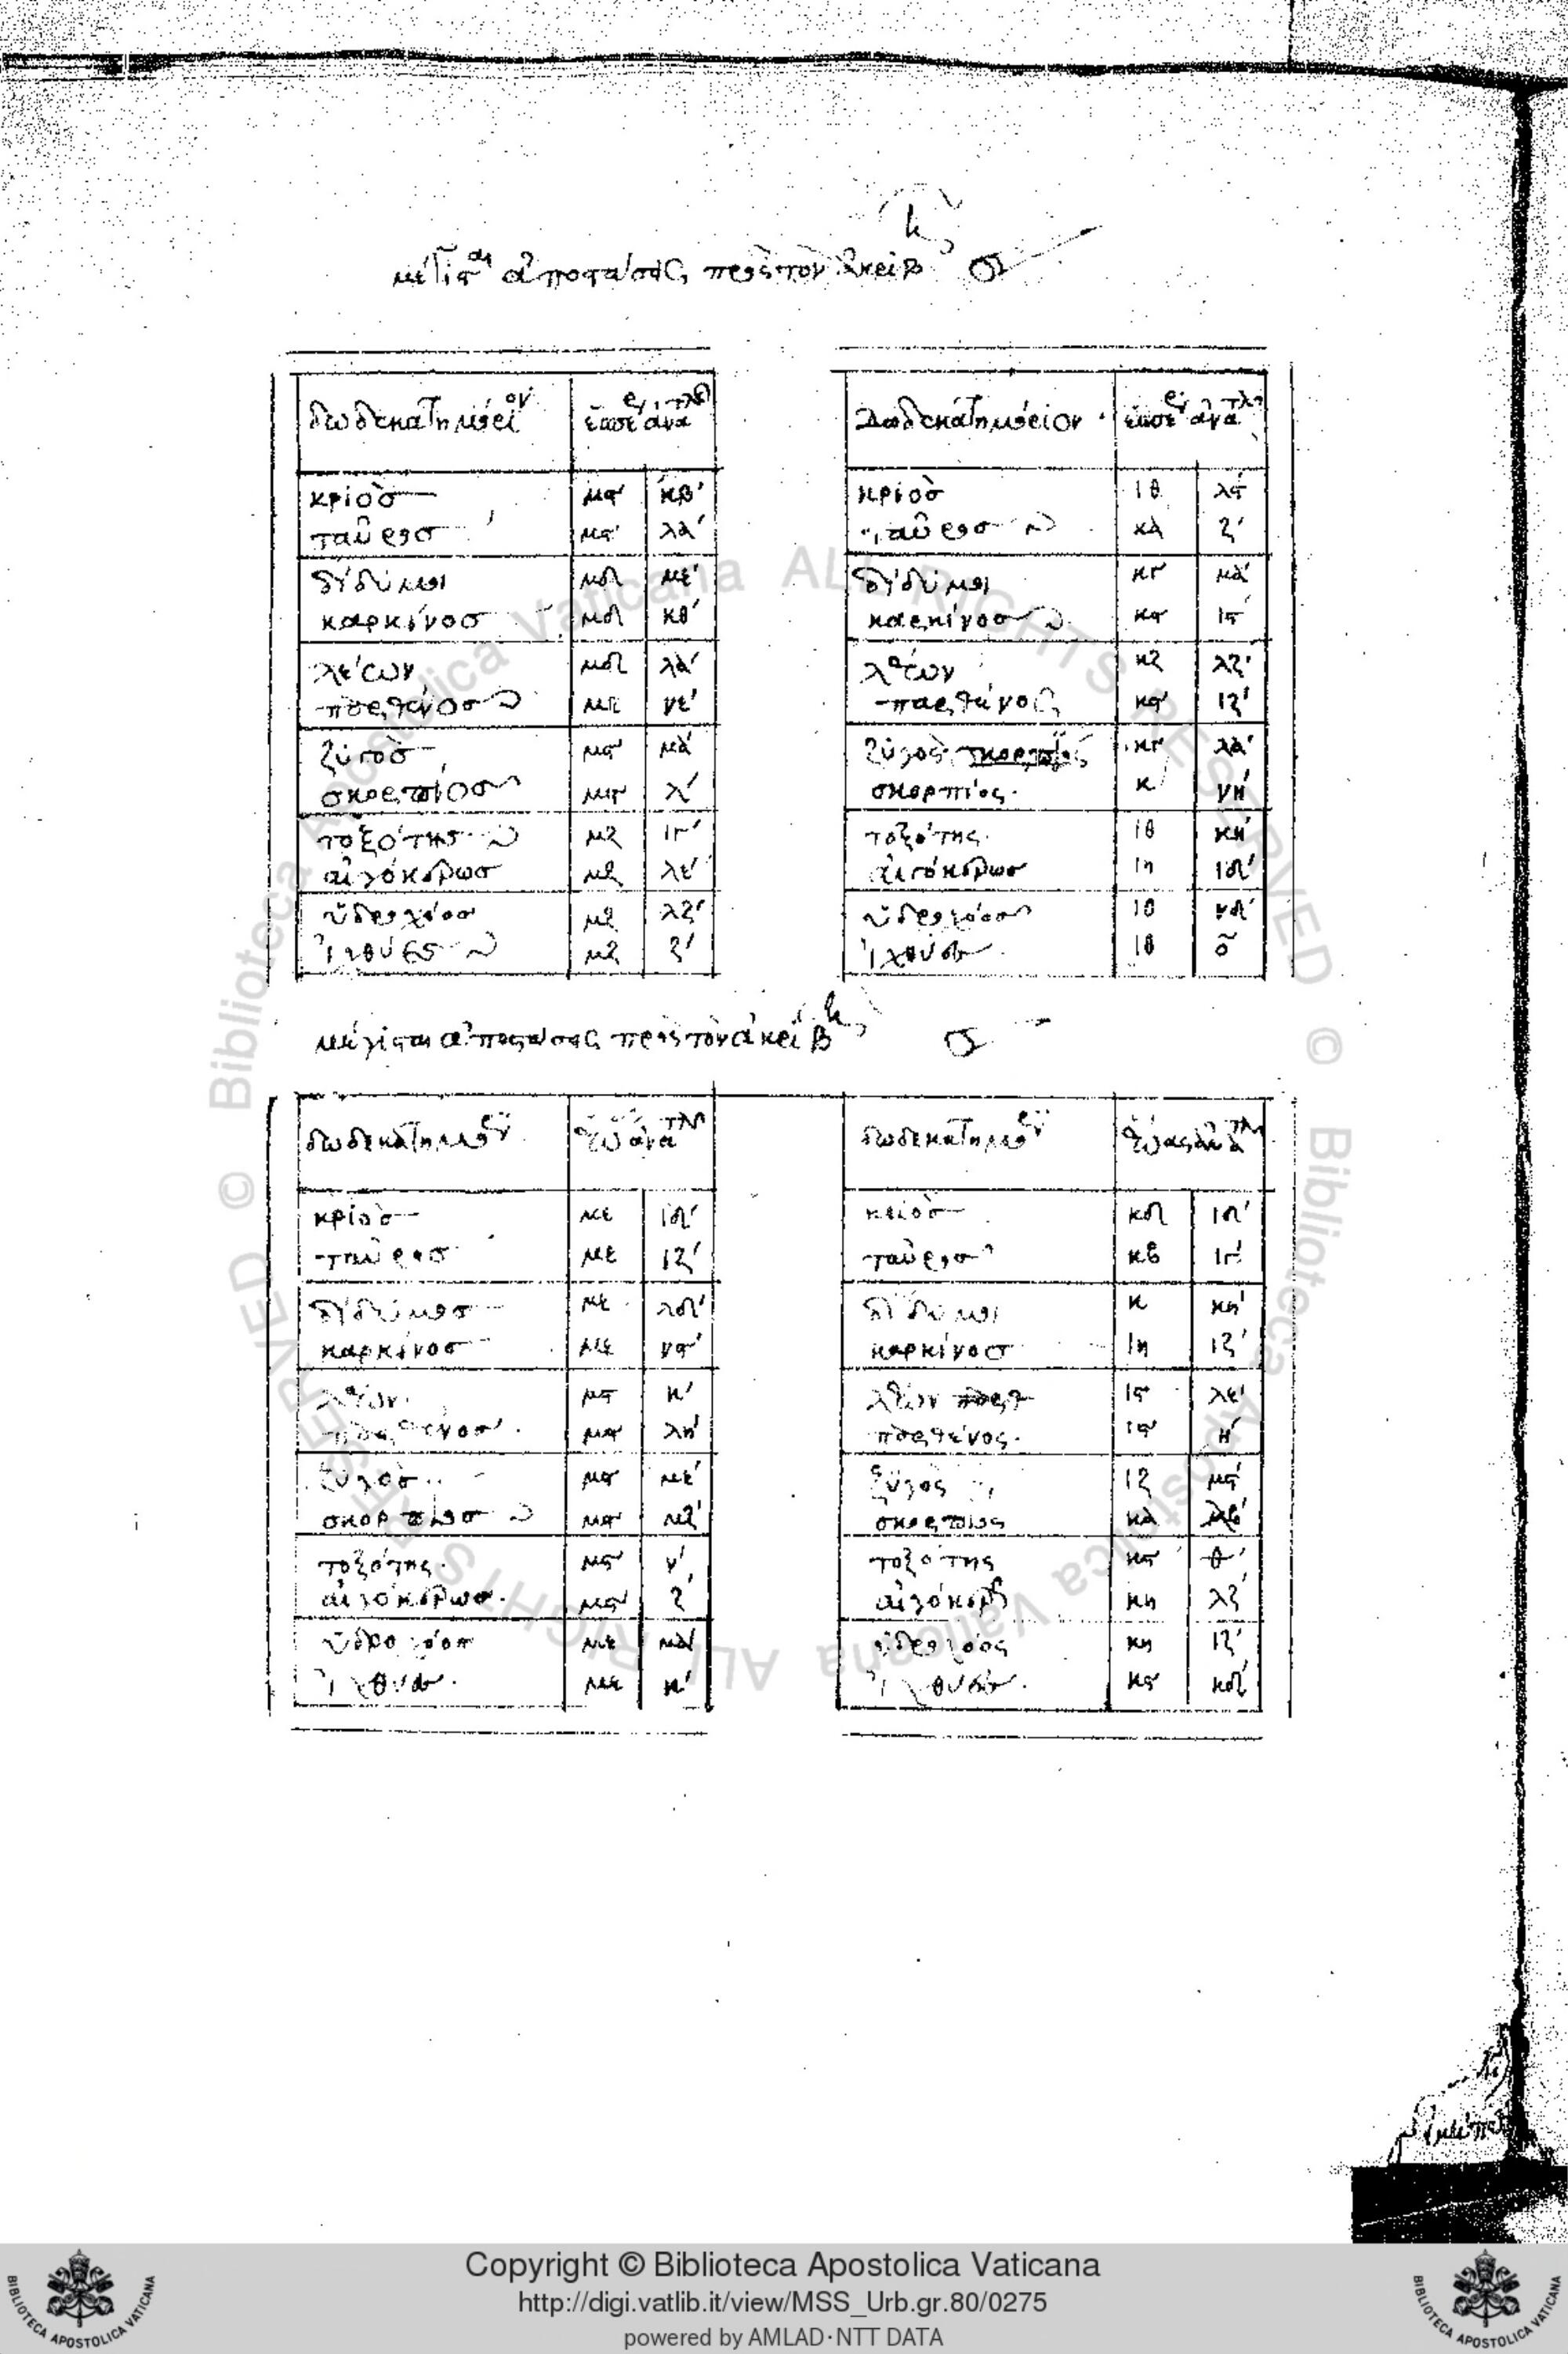 μέγισται ἀποστάσεις πρὸς τὸν ἀκριβῆ
δωδεκατημόριον
κριὸσ μϛ κβ'
ταῦροσ μϛ λα'
δίδυμοι μδ με'
καρκίνοσ μδ κθ'
λέων μδ λα'
παρθένοσ με νε'
ζύγὸσ μϛ μα'
σκορπίοσ μϛ λ'
τοξότησ μζ ιγ'
αἰγόκερωσ μζ λε'
ὑδροχόοσ μζ λζ'
ἰχθύεσ μζ ζ'
Δωδεκατημόριον
κριὸσ ιθ λϛ
ταῦροσ κα ζ'
δίδυμοι κγ μα'
καρκίνοσ κϛ ιϛ
λέων κζ λζ'
παρθένος κϛ ιζ'
ζύγὸς σκορπίος κγ λα'
σκορπίος κ νη'
τοξότης ιθ κη'
αἰγόκερωσ ιη ιδ'
ὑδροχόοσ ιθ νδ'
ἰχθύεσ ιθ ο
μέγισται ἀποστάσεις πρὸς τὸν ἀκριβῆ
δωδεκατημόριον
κριὸσ με ιδ'
ταῦροσ με ιζ'
δίδυμοσ με λδ'
καρκίνοσ με νϛ'
λέων μϛ κ'
παρθένοσ μϛ λη'
ζύγὸσ μϛ με'
σκορπίοσ μϛ μζ'
τοξότης μϛ ν'
αἰγόκερωσ μϛ ζ'
ὑδροχόοσ με μα'
ἰχθύεσ με κ'
δωδεκατημόριον
κριὸσ κδ ιδ'
ταῦροσ κβ ιγ'
δίδυμοι κ κη'
καρκίνοσ ιη ιζ'
λέων ιϛ λε'
παρθένος ιϛ η'
ζύγὸς ιζ μϛ
σκορπίος κα
τοξότης κϛ θ'
αἰγόκερως κη λζ'
ὑδροχόος κη ιζ'
ἰχθύεσ κϛ κδ'
Copyright © Biblioteca Apostolica Vaticana
http://digi.vatlib.it/view/MSS_Urb.gr.80/0275
powered by AMLAD·NTT DATA